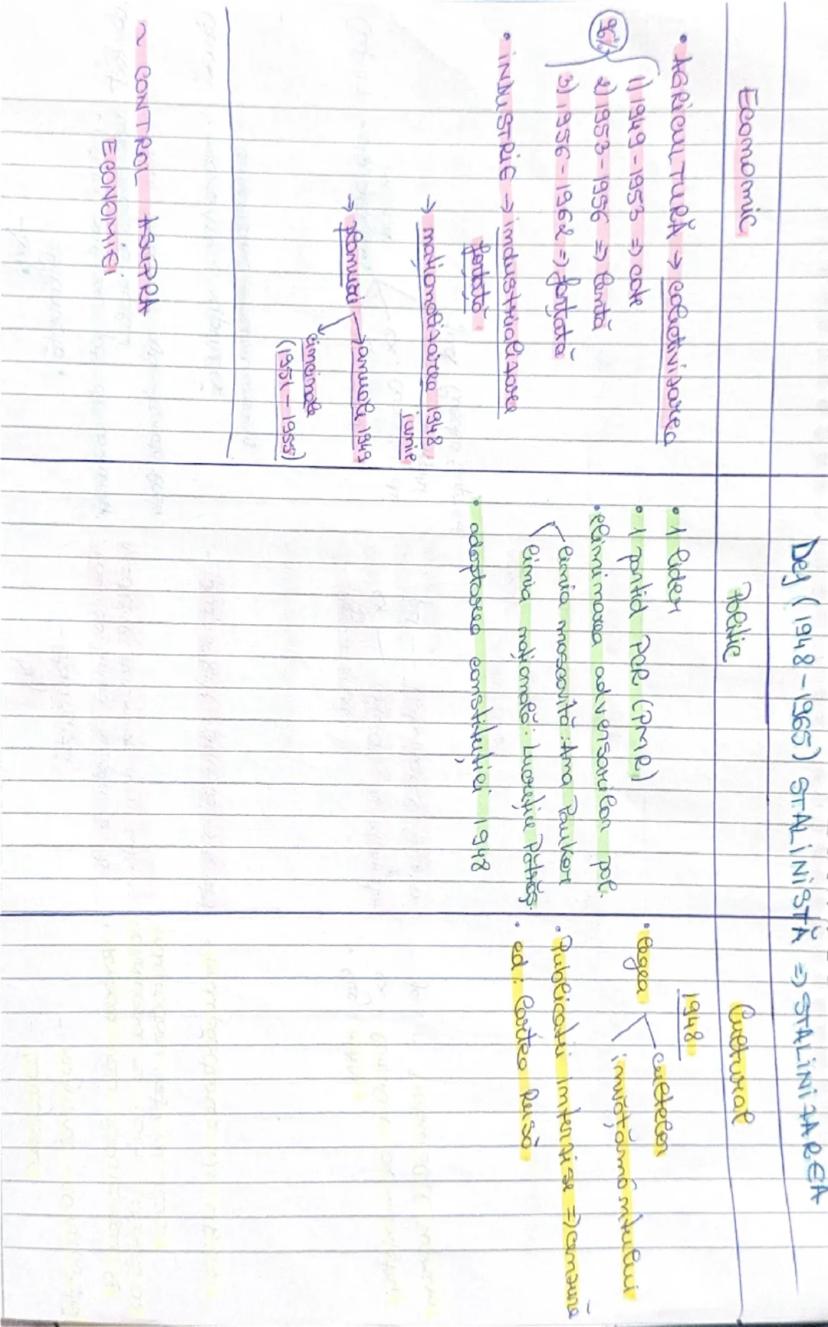 Dej (1948-1965) STALINISTĂ => STALINIZAREA
Economic
• AGRICULTURĂ → colectivizarea
96%
1) 1949-1953 => cote
2) 1953-1956 => lentă
3) 1956-1962 => forțată
• INDUSTRIE → industrializare
forțată
→ naționalizarea 1948
iunie
→ planuri → anuale 1949
cincinale
(1951-1955)
~ CONTROL ASUPRA
ECONOMIEI
Politic
• 1 lider
• 1 partid PCR (PMR)
• eliminarea adversarilor pol.
linia moscovită: Ana Pauker
linia națională: Lucrețiu Pătrăș.
• adoptarea constituției 1948
Cultural
1948
• legea cultelor
învățământului
• Publicații interzise => cenzură
• ed: Cartea Rusă